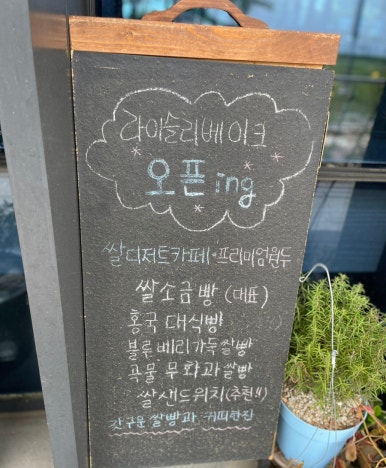 라이슬리베이크
오픈ing
쌀디저트카페·프리미엄원두
쌀소금빵 (대표)
홍국 대식빵
블루베리가득쌀빵
곡물 무화과쌀빵
쌀샌드위치(추천!!)
갓구운 쌀빵과 커피한잔